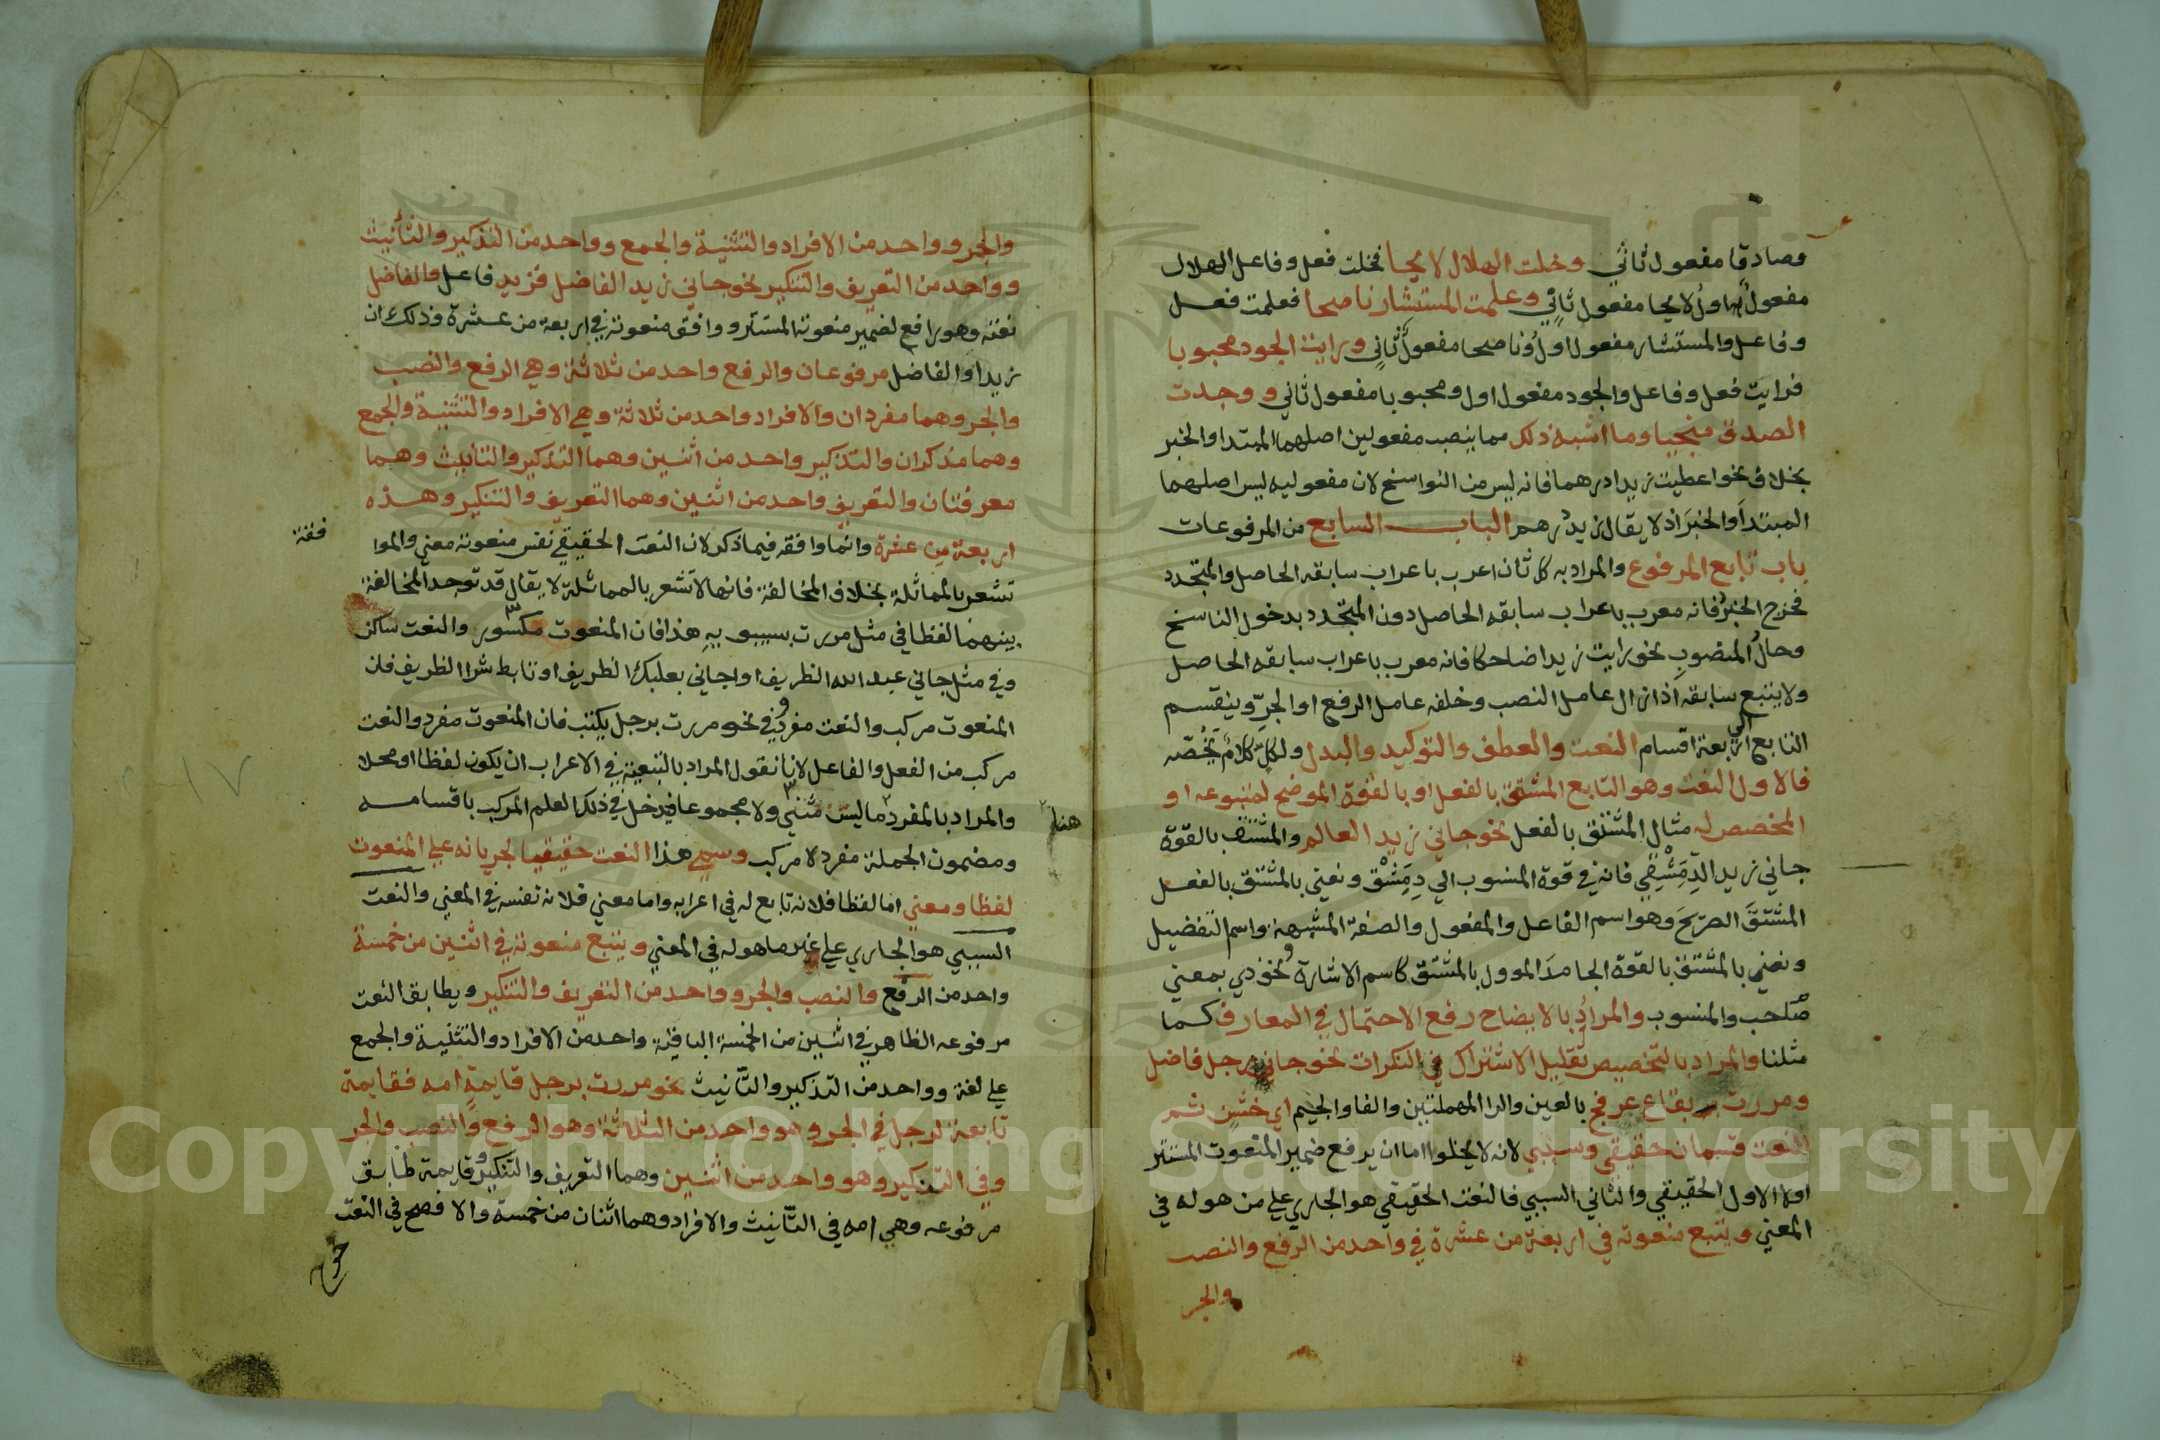 وصادقا مفعول ثاني وخلت الهلال لايحا فخلت فعل وفاعل الهلال
مفعول اول ولايحا مفعول ثاني وعلمت المستشار ناصحا فعلمت فعل
وفاعل والمستشار مفعول اول وناصحا مفعول ثاني ورايت الجود محبوبا
فرايت فعل وفاعل والجود مفعول اول ومحبوبا مفعول ثاني ووجدت
الصدق منجيا وما اشبه ذلك مما ينصب مفعولين اصلهما المبتدا والخبر
بخلاف نحو اعطيت زيدا درهما فانه ليس من النواسخ لان مفعوليه ليس اصلهما
المبتدأ والخبر اذ لا يقال زيد درهم الباب السابع من المرفوعات
باب تابع المرفوع والمراد به كل ثان اعرب باعراب سابقه الحاصل والمتجدد
فخرج الخبر فانه معرب باعراب سابقه الحاصل دون المتجدد بدخول الناسخ
وحال المنصوب نحو رايت زيدا ضاحكا فانه معرب باعراب سابقه الحاصل
ولا يتبع سابقه اذا زال عامل النصب وخلفه عامل الرفع او الجر وينقسم
التابع الي اربعة اقسام النعت والعطف والتوكيد والبدل ولكل كلام يخصه
فالاول النعت وهو التابع المشتق بالفعل او بالقوة الموضح لمتبوعه او
المخصص له مثال المشتق بالفعل نحو جاني زيد العالم والمشتق بالقوة
جاني زيد الدمشقي فانه في قوة المنسوب الي دمشق ونعني بالمشتق بالفعل
المشتق الصريح وهو اسم الفاعل والمفعول والصفة المشبهة واسم التفضيل
ونعني بالمشتق بالقوة الجامد الموول بالمشتق كاسم الاشارة ونحو ذي بمعني
صاحب والمنسوب والمراد بالايضاح رفع الاحتمال في المعارف كما
مثلنا والمراد بالتخصيص تقليل الاشتراك في النكرات نحو جاني رجل فاضل
ومررت بقاع عرفج بالعين والرا المهملتين والفا والجيم اي خشن ثم
النعت قسمان حقيقي وسببي لانه لا يخلوا اما ان يرفع ضمير المنعوت المستتر
اولا الاول الحقيقي والثاني السببي فالنعت الحقيقي هو الجاري علي من هو له في
المعني ويتبع منعوته في اربعة من عشرة في واحد من الرفع والنصب
والجر
والجر وواحد من الافراد والتثنية والجمع وواحد من التذكير والتأنيث
وواحد من التعريف والتنكير نحو جاني زيد الفاضل فزيد فاعل والفاضل
نعته وهو رافع لضمير منعوته المستتر ووافق منعوته في اربعة من عشرة وذلك ان
زيدا والفاضل مرفوعان والرفع واحد من ثلاثة وهي الرفع والنصب
والجر وهما مفردان والافراد واحد من ثلاثة وهي الافراد والتثنية والجمع
وهما مذكران والتذكير واحد من اثنين وهما التذكير والتانيث وهما
معرفتان والتعريف واحد من اثنين وهما التعريف والتنكير وهذه
اربعة من عشرة وانما وافقه فيما ذكر لان النعت الحقيقي نفس منعوته معني والموا
فقة
تشعر بالمماثلة بخلاف المخالفة فانها لا تشعر بالمماثلة لا يقال قد توجد المخالفة
بينهما لفظا في مثل مررت بسيبويه هذا فان المنعوت مكسور والنعت ساكن
وفي مثل جاني عبد الله الظريف او جاني بعلبك الظريف او تابط شرا الظريف فان
المنعوت مركب والنعت مفرد وفي نحو مررت برجل يكتب فان المنعوت مفرد والنعت
مركب من الفعل والفاعل لانا نقول المراد بالتبعية في الاعراب ان يكون لفظا او محلا
والمراد بالمفرد هنا ما ليس مثني ولا مجموعا فيدخل في ذلك العلم المركب باقسامه
ومضمون الجملة مفرد لا مركب وسمي هذا النعت حقيقيا لجريانه علي المنعوت
لفظا ومعني اما لفظا فلانه تابع له في اعرابه واما معني فلانه نفسه في المعني والنعت
السببي هو الجاري علي غير ما هو له في المعني ويتبع منعوته في اثنين من خمسة
واحد من الرفع والنصب والجر وواحد من التعريف والتنكير ويطابق النعت
مرفوعه الظاهر في اثنين من الخمسة الباقية واحد من الافراد والتثنية والجمع
علي لغة وواحد من التذكير والتأنيث نحو مررت برجل قايمة امه فقايمة
تابعة لرجل في الجر وهو واحد من الثلاثة وهو الرفع والنصب والجر
وفي التنكير وهو واحد من اثنين وهما التعريف والتنكير وقايمة طابق
مرفوعه وهي امه في التأنيث والافراد وهما اثنان من خمسة والافصح في النعت
Copyright © King Saud University